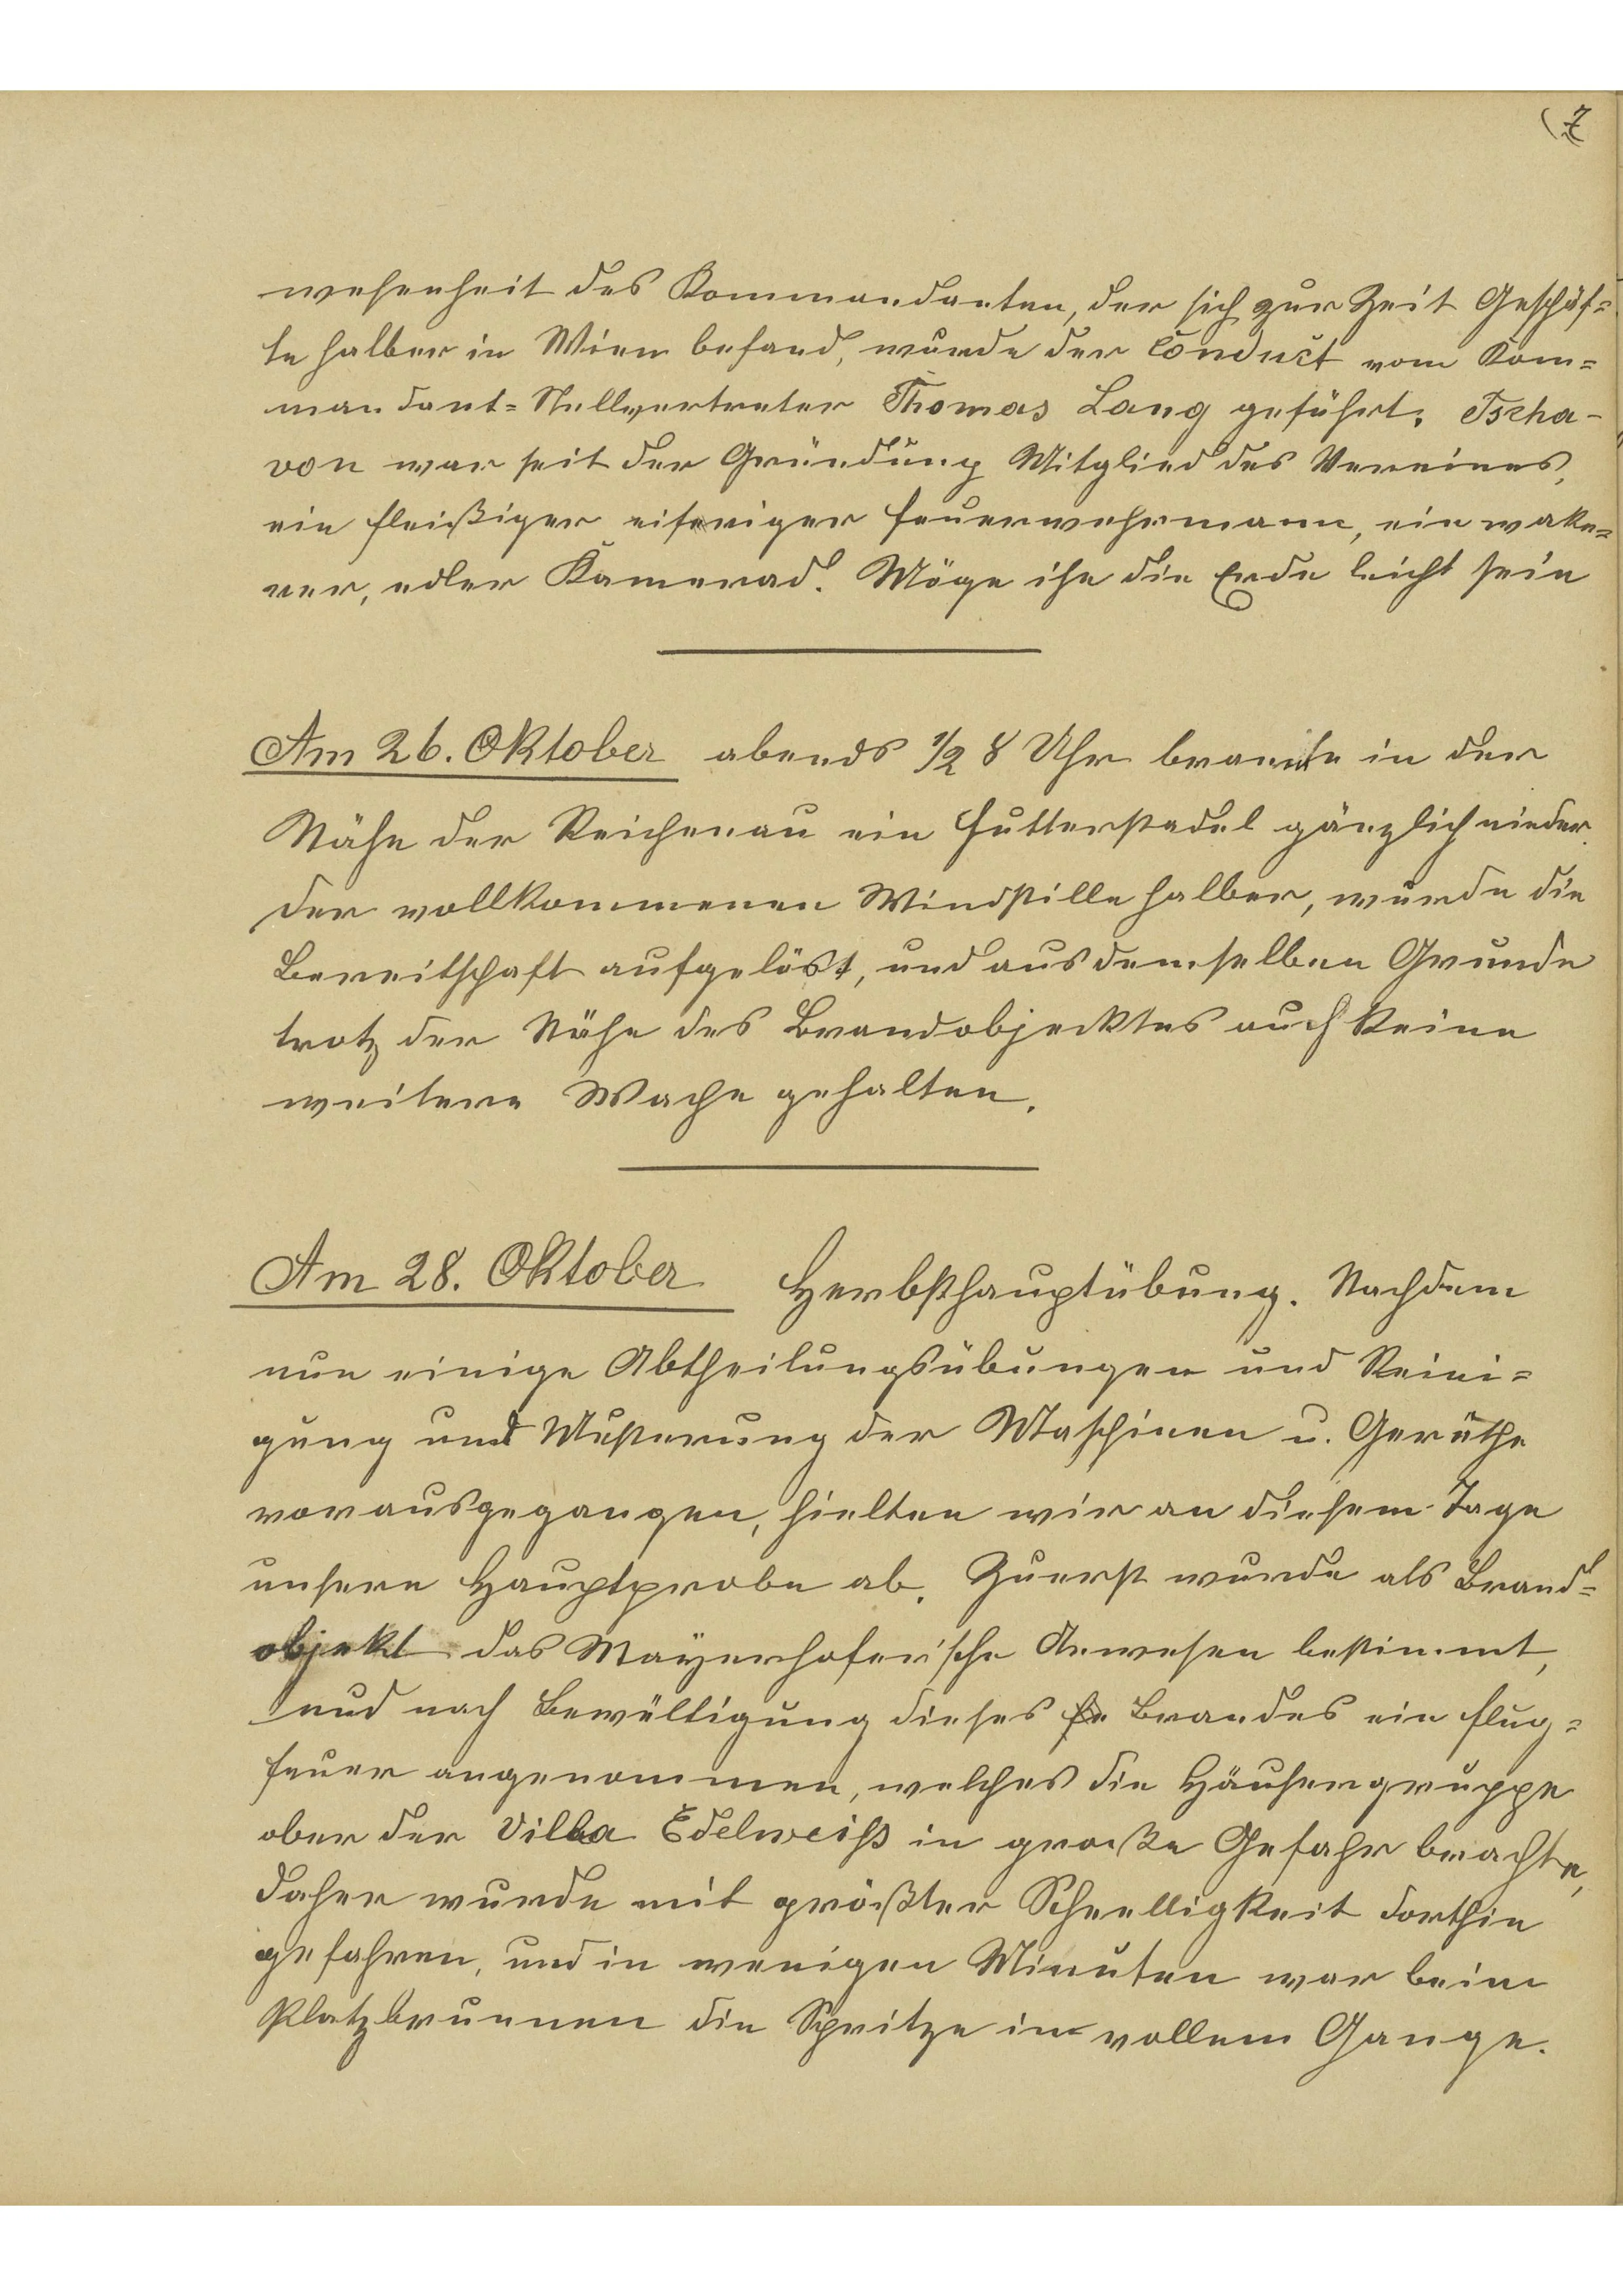 7
wesenheit des Kommandanten, der sich zur Zeit Geschäf=
te halber in Wien befand, wurde der Conduct vom Kom=
mandant=Stellvertreter Thomas Lang geführt. Tscha-
von war seit der Gründung Mitglied des Vereines,
ein fleißiger eifriger Feuerwehrmann, ein wake=
rer, edler Kamerad. Möge ihn die Erde leicht sein
Am 26. Oktober abends 1/2 8 Uhr brannte in der
Nähe der Reichenau ein Futterstadel gänzlich nieder.
Der vollkommenen Windstille halber, wurde die
Bereitschaft aufgelöst, und aus demselben Grunde
trotz der Nähe des Brandobjecktes auch keine
weitere Wache gehalten.
Am 28. Oktober Herbsthauptübung. Nachdem
nun einige Abtheilungsübungen und Reini=
gung und Musterung der Maschinen u. Geräthe
vorausgegangen, hielten wir an diesem Tage
unsere Hauptprobe ab. Zuerst wurde als Brand=
objekt das Mayerhofer'sche Anwesen bestimmt,
und nach Bewältigung dieses Brandes ein Flug=
feuer angenommen, welches die Häusergruppe
ober der Villa Edelweiß in große Gefahr brachte,
daher wurde mit größter Schnelligkeit dorthin
gefahren, und in wenigen Minuten war beim
Platzbrunnen die Spritze im vollem Gange.